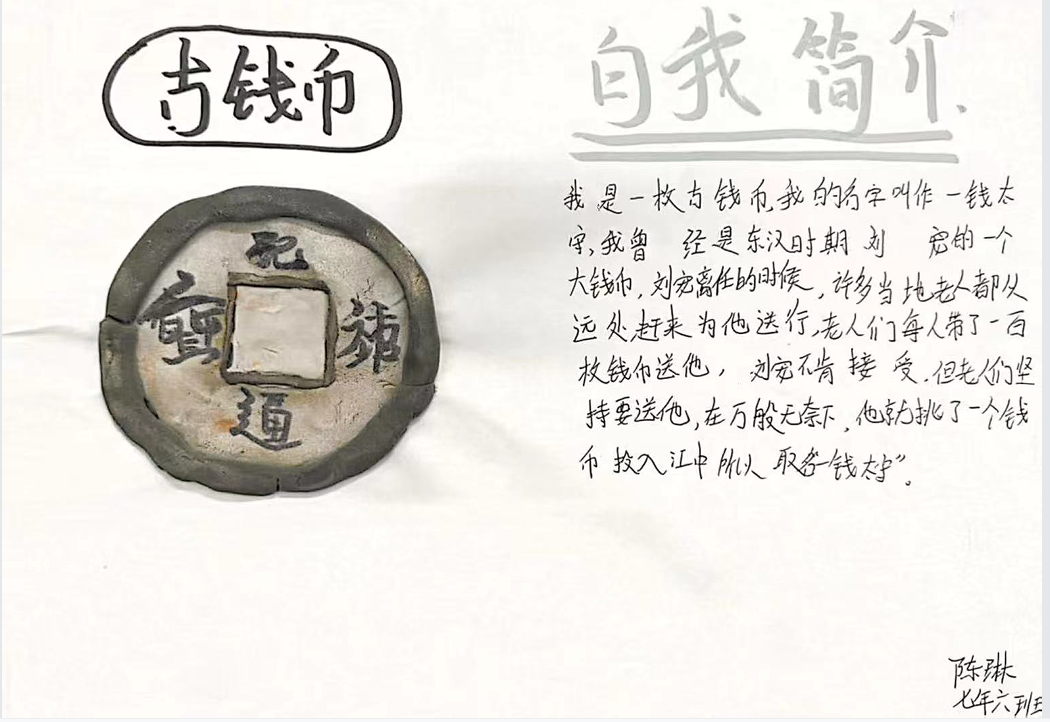 古钱币
自我简介.
通
我是一枚古钱币,我的名字叫作一钱太
守,我曾经是东汉时期刘宠的一个
大钱币,刘宠离任的时候,许多当地老人都从
远处赶来为他送行,老人们每人带了一百
枚钱币送他,刘宠不肯接受,但老人们坚
持要送他,在万般无奈下,他就挑了一个钱
币投入江中所以取名“一钱太守”。
陈琳
七年六班